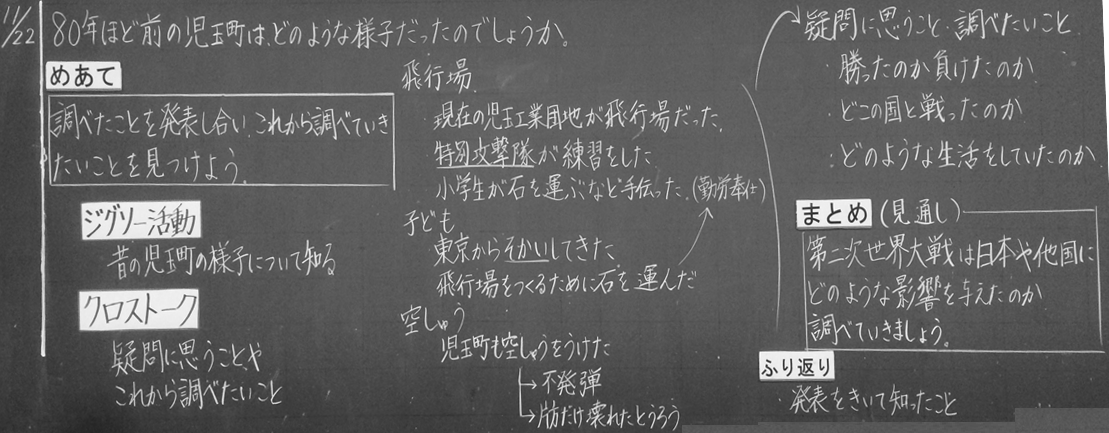 11/22
80年ほど前の児玉町は、どのような様子だったのでしょうか。
めあて
調べたことを発表し合い、これから調べていき
たいことを見つけよう。
ジグソー活動
昔の児玉町の様子について知る
クロストーク
疑問に思うことや
これから調べたいこと
飛行場
現在の児玉工業団地が飛行場だった。
特別攻撃隊が練習をした
小学生が石を運ぶなど手伝った。(勤労奉仕)
子ども
東京からそかいしてきた
飛行場をつくるために石を運んだ
空しゅう
児玉町も空しゅうをうけた
→不発弾
→片方だけ壊れたとうろう
疑問に思うこと・調べたいこと
・勝ったのか負けたのか
・どこの国と戦ったのか
・どのような生活をしていたのか
まとめ(見通し)
第二次世界大戦は日本や他国に
どのような影響を与えたのか
調べていきましょう。
ふり返り
発表をきいて知ったこと